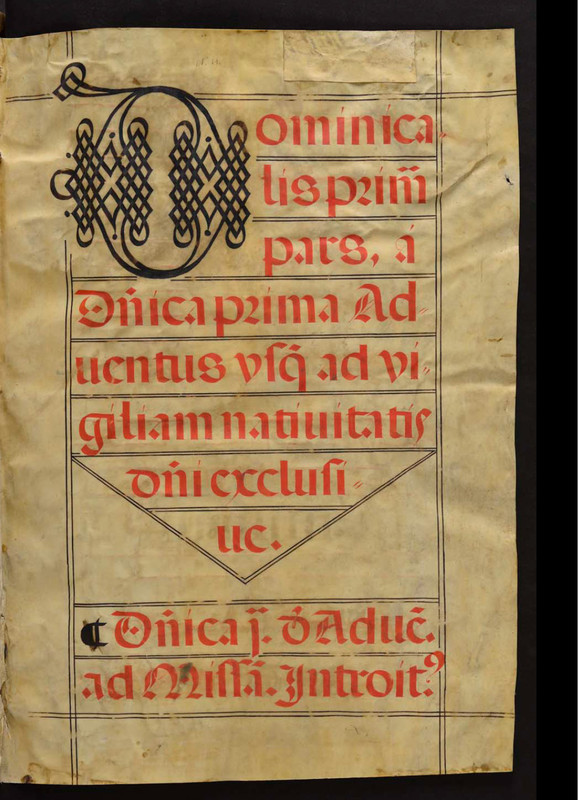 Dominica-
lis prim̃
pars, á
Dñica prima Ad-
uentus vſq̃ ad vi-
giliam natiuitatis
dñi excluſi-
ue.
¶ Dñica j. đ Aduẽ.
ad Miſſã. Introitꝰ